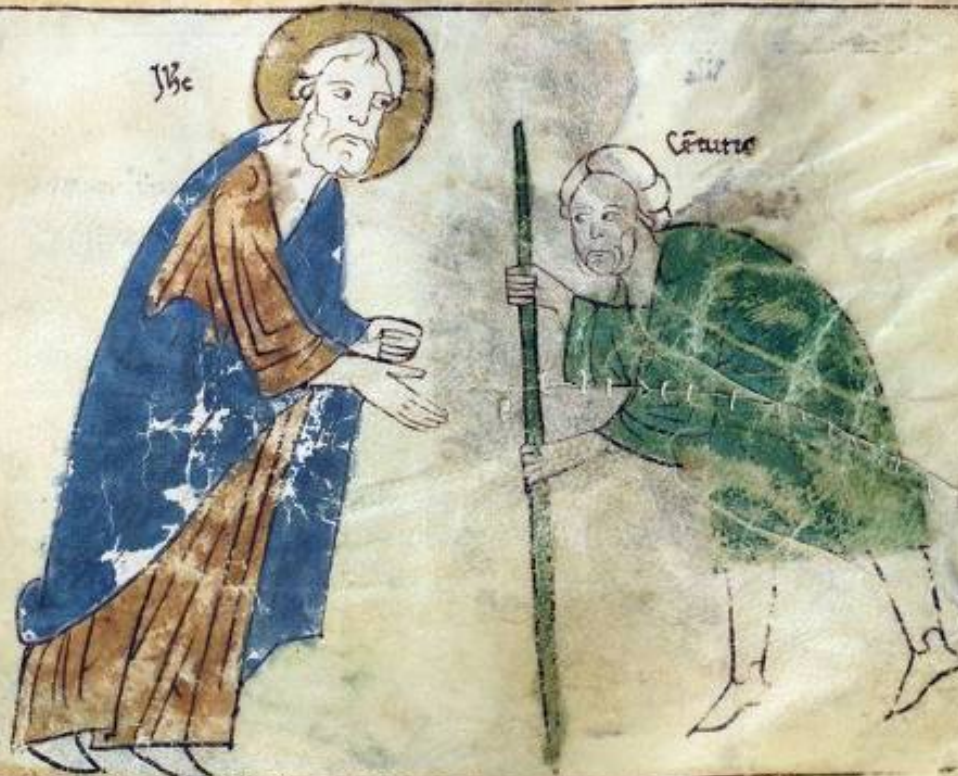 Jh̄c
Cēturio